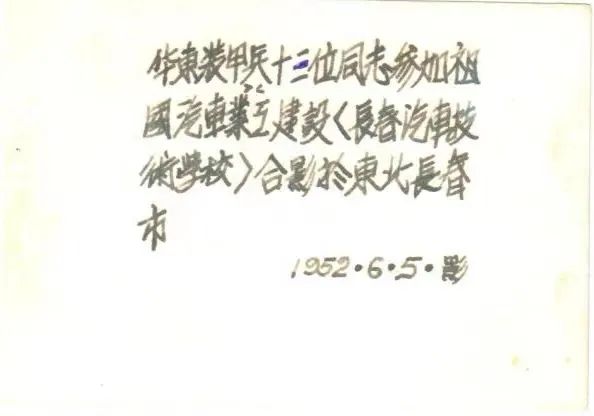 华東装甲兵十三位同志参加祖
國汽車業工建設〈長春汽車技
術學校〉合影於東北長春
市
1952·6·5·影